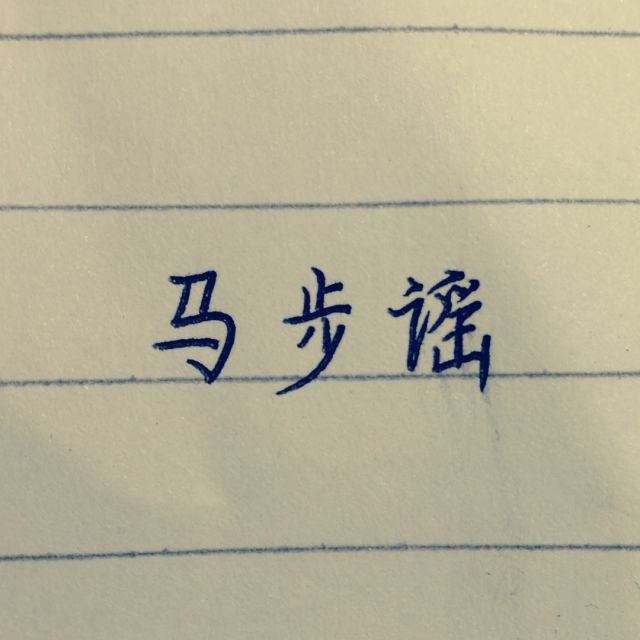 马步谣